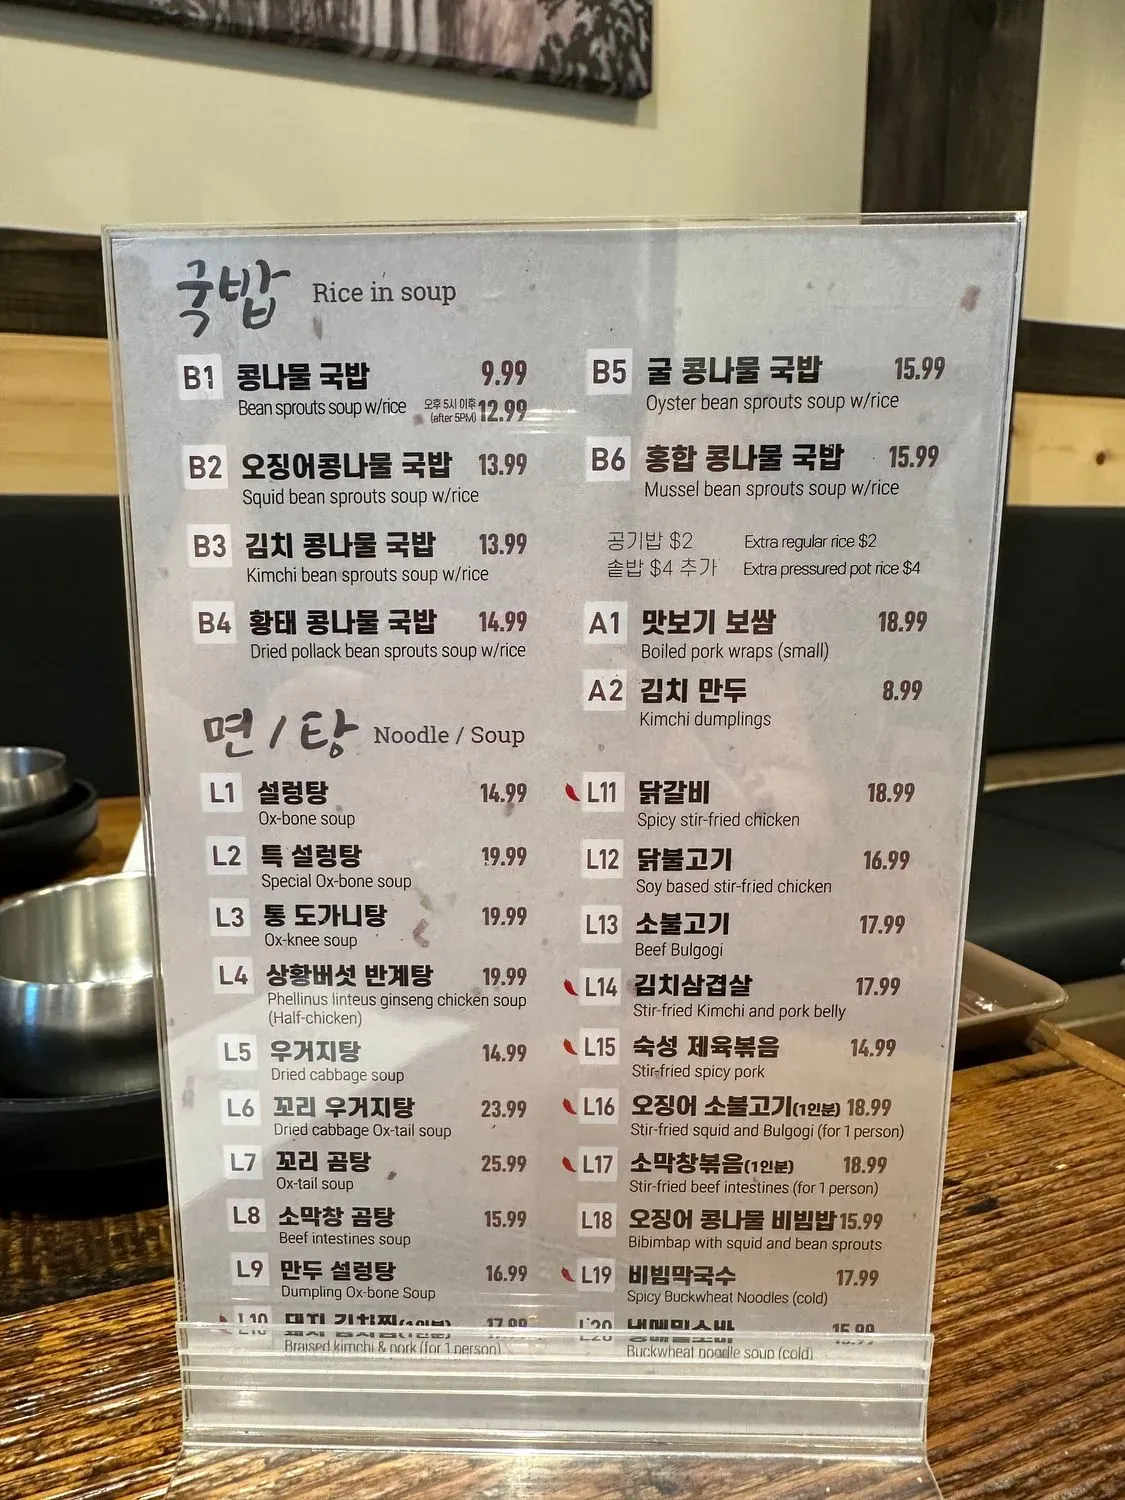 국밥 Rice in soup
B1 콩나물 국밥 9.99
Bean sprouts soup w/rice 오후 5시 이후 (after 5PM) 12.99
B2 오징어콩나물 국밥 13.99
Squid bean sprouts soup w/rice
B3 김치 콩나물 국밥 13.99
Kimchi bean sprouts soup w/rice
B4 황태 콩나물 국밥 14.99
Dried pollack bean sprouts soup w/rice
B5 굴 콩나물 국밥 15.99
Oyster bean sprouts soup w/rice
B6 홍합 콩나물 국밥 15.99
Mussel bean sprouts soup w/rice
공기밥 $2 Extra regular rice $2
솥밥 $4 추가 Extra pressured pot rice $4
A1 맛보기 보쌈 18.99
Boiled pork wraps (small)
A2 김치 만두 8.99
Kimchi dumplings
면 / 탕 Noodle / Soup
L1 설렁탕 14.99
Ox-bone soup
L2 특 설렁탕 19.99
Special Ox-bone soup
L3 통 도가니탕 19.99
Ox-knee soup
L4 상황버섯 반계탕 19.99
Phellinus linteus ginseng chicken soup
(Half-chicken)
L5 우거지탕 14.99
Dried cabbage soup
L6 꼬리 우거지탕 23.99
Dried cabbage Ox-tail soup
L7 꼬리 곰탕 25.99
Ox-tail soup
L8 소막창 곰탕 15.99
Beef intestines soup
L9 만두 설렁탕 16.99
Dumpling Ox-bone Soup
L10 돼지 김치찜(1인분) 17.99
Braised kimchi & pork (for 1 person)
L11 닭갈비 18.99
Spicy stir-fried chicken
L12 닭불고기 16.99
Soy based stir-fried chicken
L13 소불고기 17.99
Beef Bulgogi
L14 김치삼겹살 17.99
Stir-fried Kimchi and pork belly
L15 숙성 제육볶음 14.99
Stir-fried spicy pork
L16 오징어 소불고기(1인분) 18.99
Stir-fried squid and Bulgogi (for 1 person)
L17 소막창볶음(1인분) 18.99
Stir-fried beef intestines (for 1 person)
L18 오징어 콩나물 비빔밥 15.99
Bibimbap with squid and bean sprouts
L19 비빔막국수 17.99
Spicy Buckwheat Noodles (cold)
L20 냉메밀소바 15.99
Buckwheat noodle soup (cold)